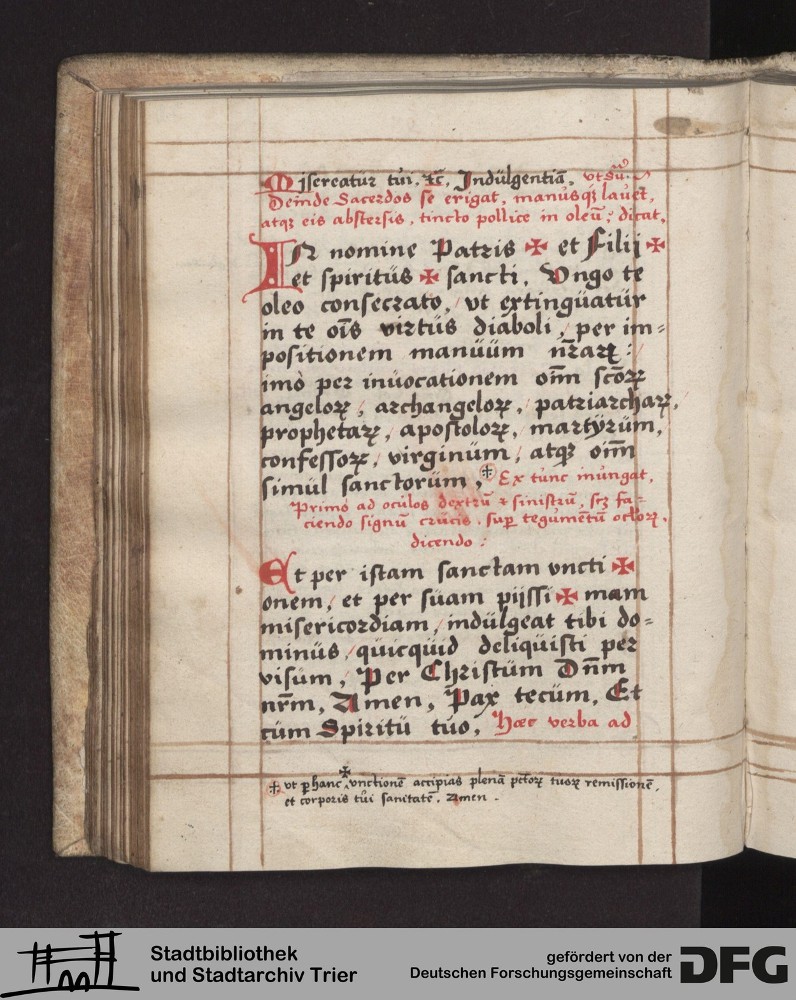 Misereatur tui, ꝛc̄, Indulgentiā, vt sū.
Deinde Sacerdos se erigat, manusqꝫ lauet,
atqꝫ eis abstersis, tincto pollice in oleū; dicat,
IN nomine Patris ✠ et Filij ✠
et spiritüs ✠ sancti, Vngo te
oleo consecrato, vt extingüatür
in te oīs virtüs diaboli, per im=
positionem manüüm nr̄arꝝ:
imò per inüocationem oīm scōrꝝ
angelorꝝ, archangelorꝝ, patriarcharꝝ,
prophetarꝝ, apostolorꝝ, martÿrüm,
confessorꝝ, virginüm, atqꝫ oīm
simül sanctorüm, ✢ Ex tunc inungat,
Primo ad oculos dextrū ⁊ sinistrū, scꝫ fa=
ciendo signū crucis, suꝑ tegumētū oclorꝝ,
dicendo:
Et per istam sanctam vncti ✠
onem, et per süam pijssi ✠ mam
misericordiam, indülgeat tibi do=
minüs, quicqüid deliqüisti per
visüm, Per Christüm Dn̄m
nr̄m, Amen, Pax tecüm, Et
cüm Spiritü tüo, Hæc verba ad
✢ vt ꝑ hanc ✠ vnctionē accipias plenā pctōrꝝ tuorꝝ remissionē,
et corporis tui sanitatē. Amen.
Stadtbibliothek
und Stadtarchiv Trier
gefördert von der
Deutschen Forschungsgemeinschaft
DFG